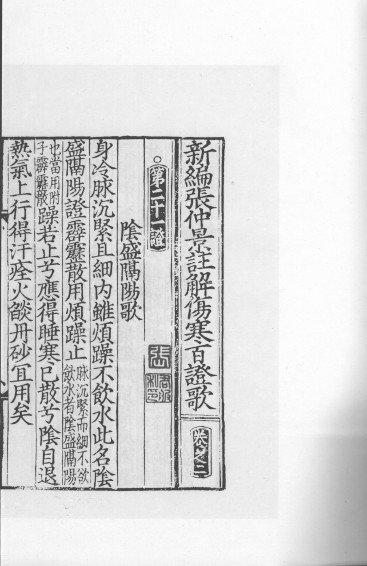 新編張仲景註解傷寒百證歌 卷之二
第二十一證
陰盛隔陽歌
身冷脉沉緊且細內雖煩躁不飲水此名陰
盛隔陽證霹靂散用煩躁止
脉沉緊而細不欲
飲水者陰盛隔陽
也當用附
子霹靂散
躁若止兮應得睡寒已散兮陰自退
熱氣上行得汗痊火燄丹砂宜用矣